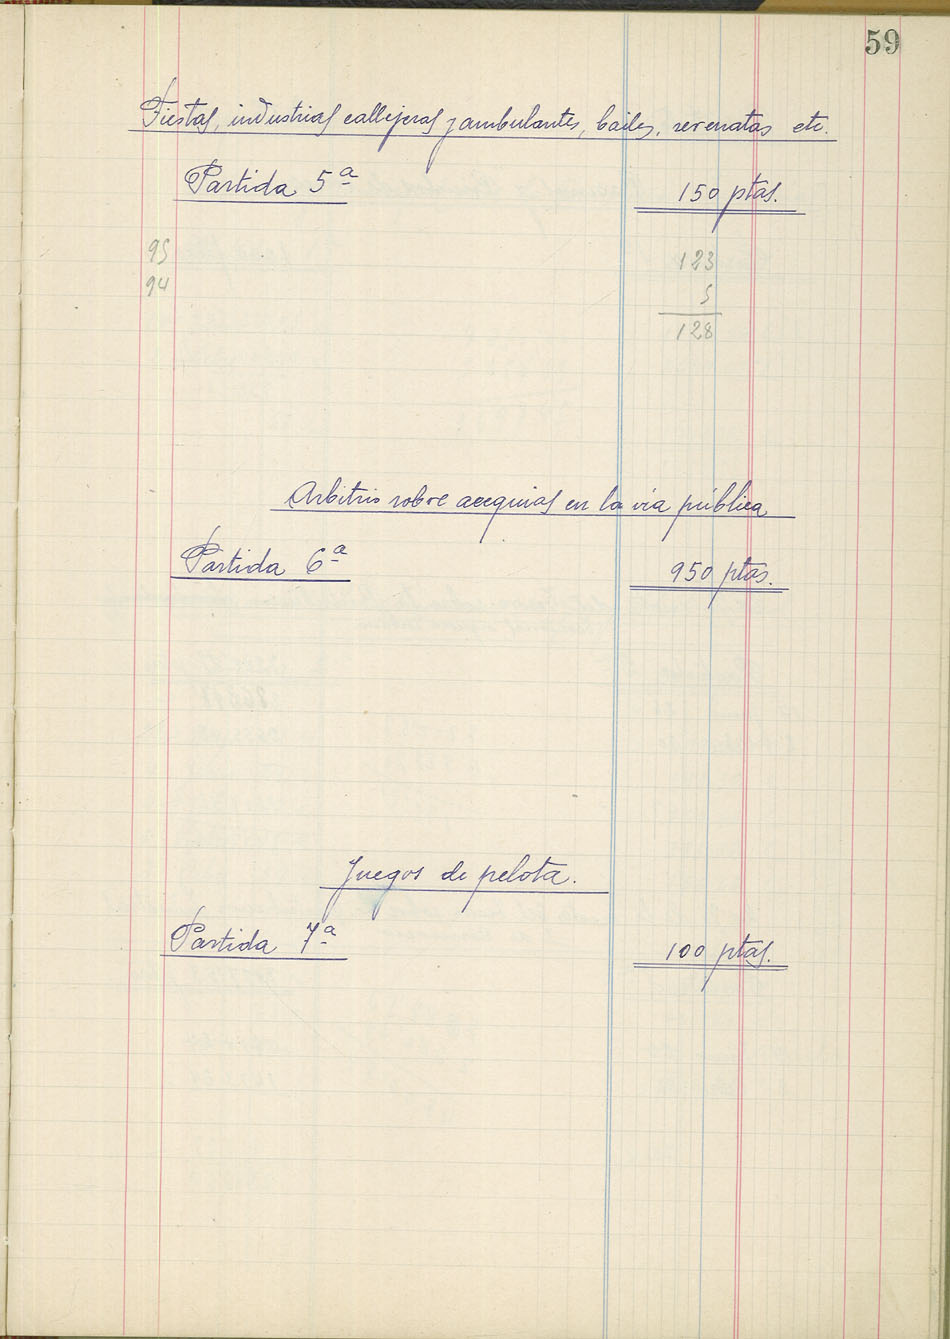 59
Fiestas, industrias callejeras y ambulantes, bailes, serenatas etc.
Partida 5ª 150 ptas.
95 123
94 5
128
Arbitrio sobre acequias en la via pública
Partida 6ª 950 ptas.
Juegos de pelota.
Partida 7ª 100 ptas.